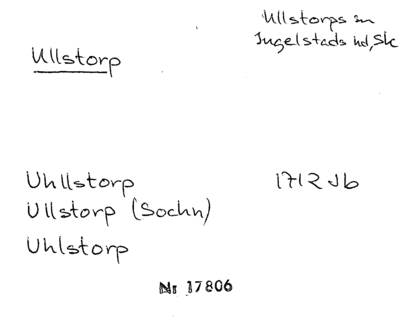 Ullstorps sn
Ingelstads hd, Sk
Ullstorp
Uhllstorp 1712 Jb
Ullstorp (Sochn)
Uhlstorp
Nr 17806